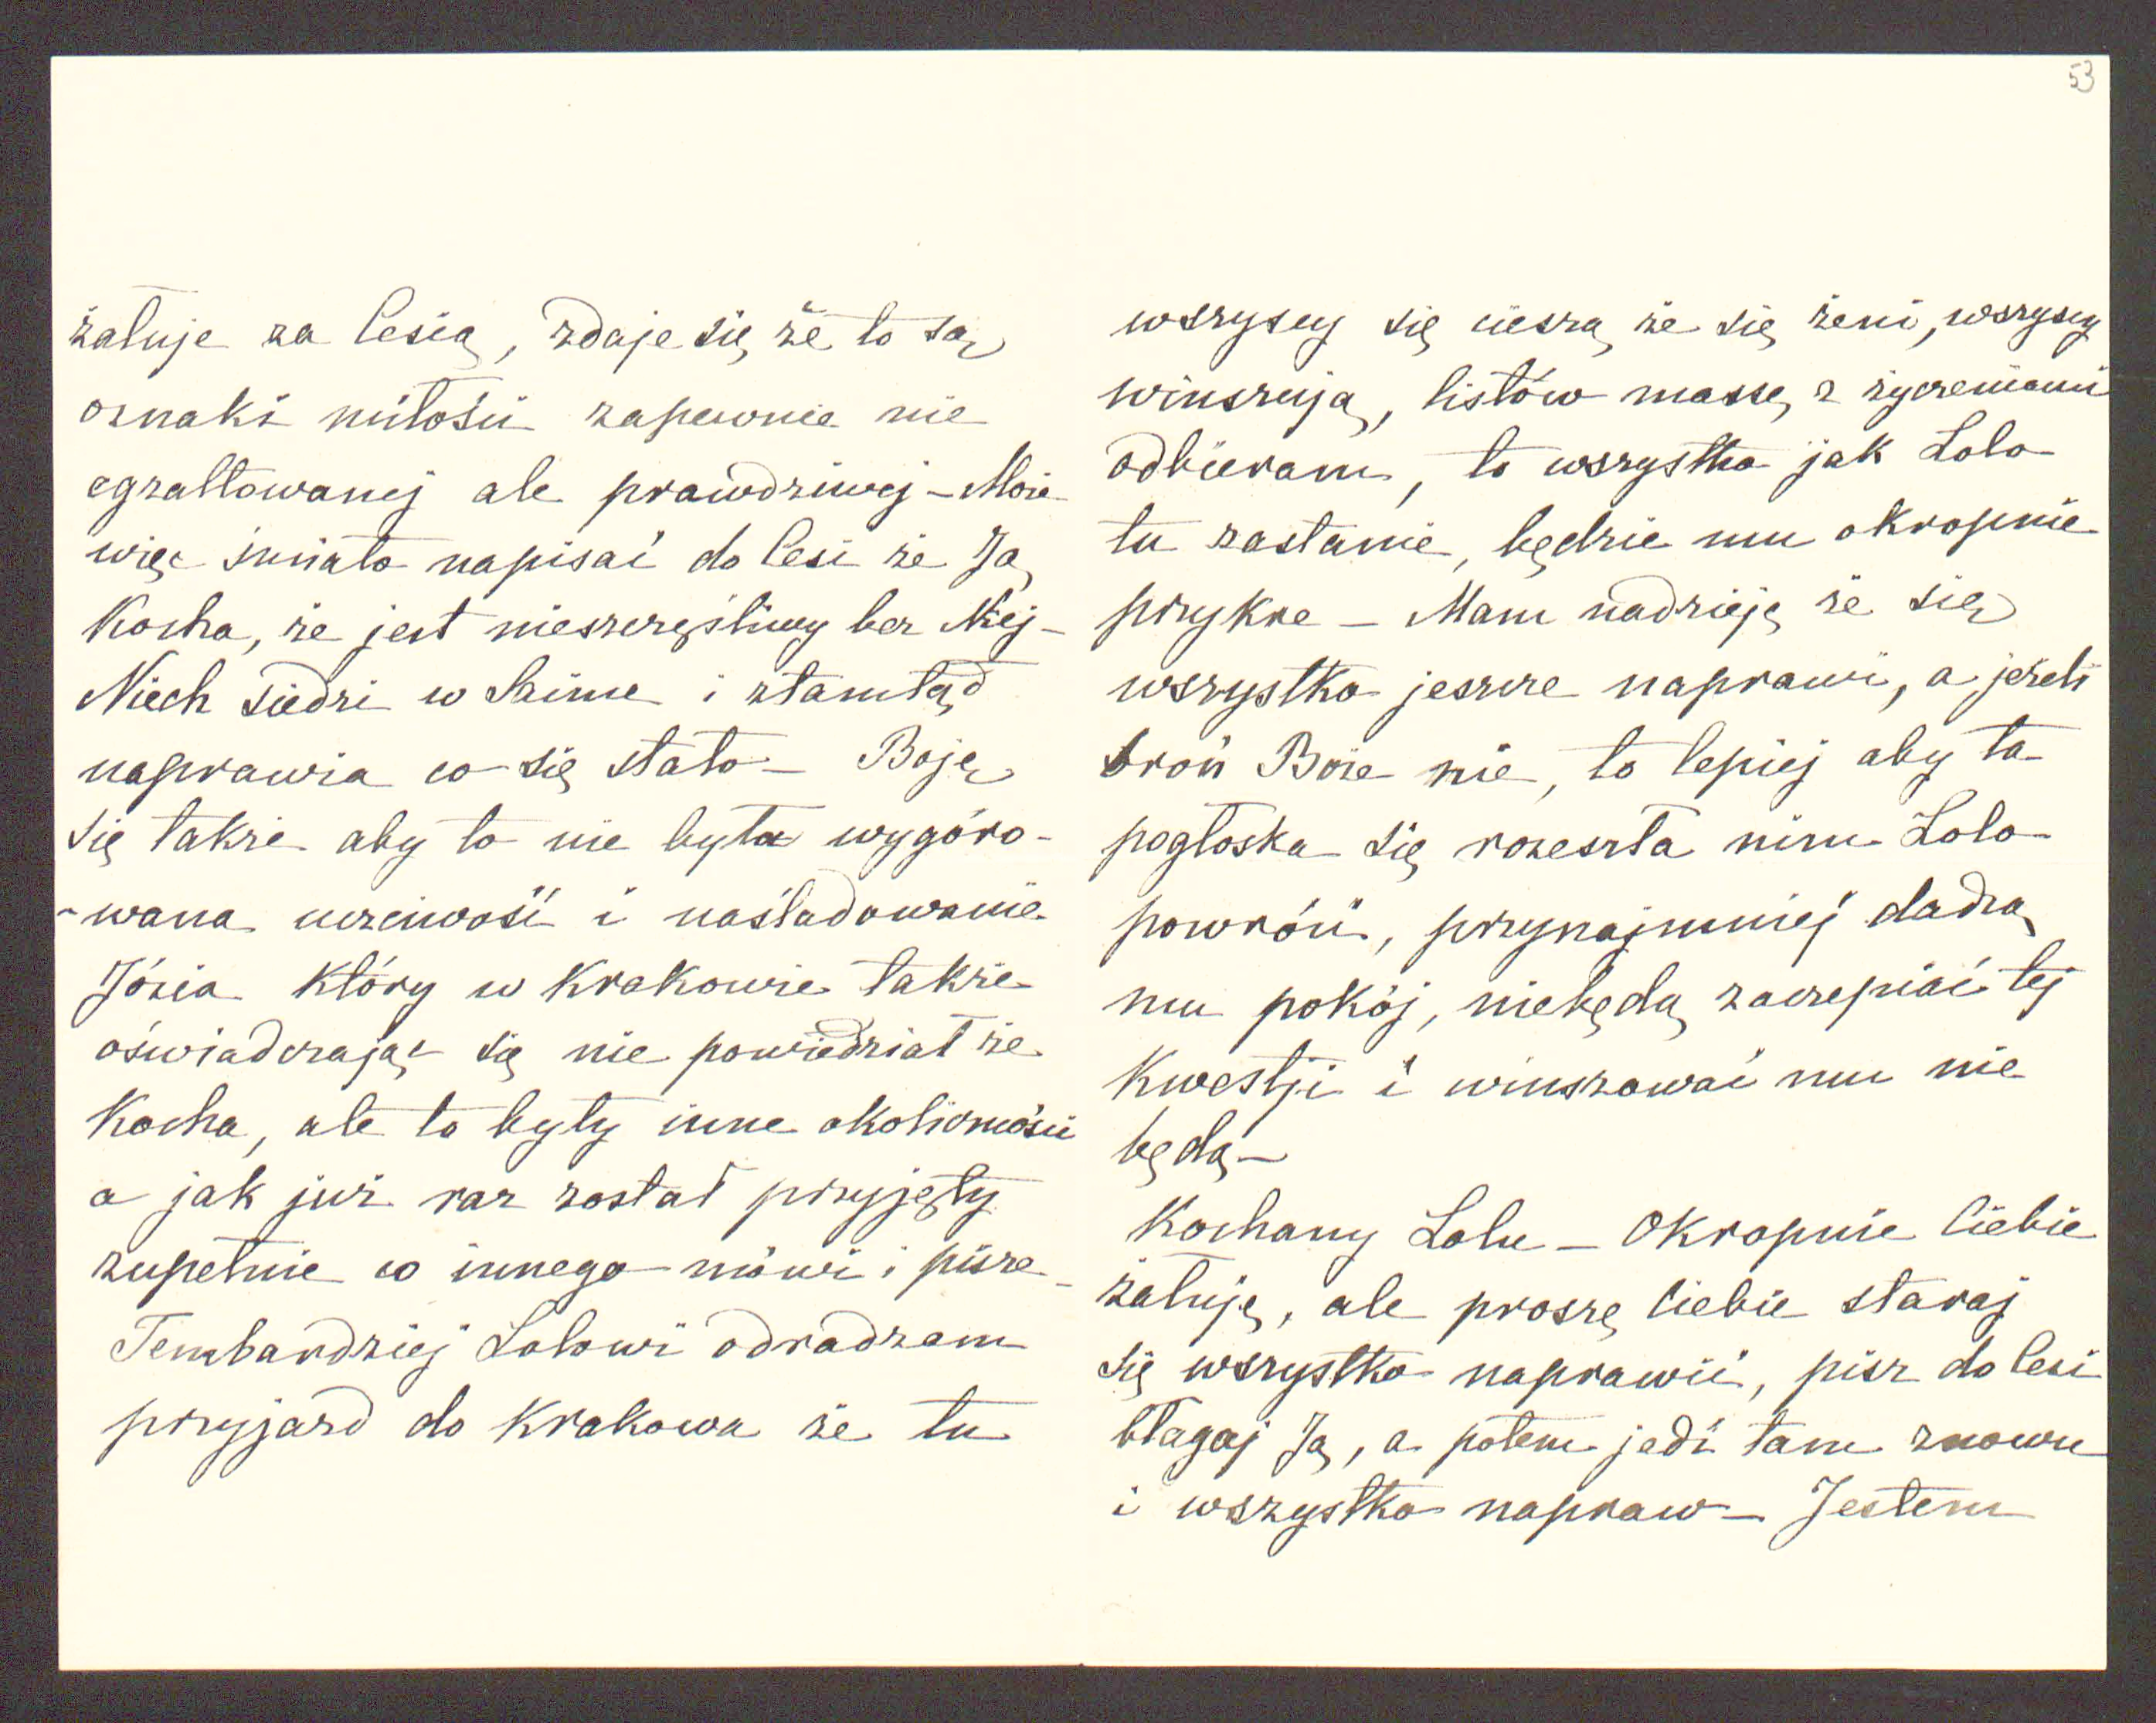 53
żałuje za Cesią, zdaje się że to są
oznaki miłości zapewnie nie
egzaltowanej ale prawdziwej – Może
więc śmiało napisać do Cesi że Ją
kocha, że jest nieszczęśliwy bez Niej –
Niech siedzi w Saime i ztamtąd
naprawia co się stało – Boję
się także aby to nie była wygóro-
-wana uczciwość i naśladowanie
Józia który w Krakowie także
oświadczając się nie powiedział że
kocha, ale to były inne okoliczności
a jak już raz został przyjęty
zupełnie co innego mówi i pisze –
Tembardziej Lolowi odradzam
przyjazd do Krakowa że tu
wszyscy się cieszą że się żeni, wszyscy
winszują, listów massę z życzeniami
odbieram, to wszystko jak Lolo
tu zastanie, będzie mu okropnie
przykre – Mam nadzieję że się
wszystko jeszcze naprawi, a jeżeli
broń Boże nie, to lepiej aby ta
pogłoska się rozeszła nim Lolo
powróci, przynajmniej dadzą
mu pokój, niebędą zaczepiać tej
kwestji i winszować mu nie
będą –
Kochany Lolu – Okropnie Ciebie
żałuję, ale proszę Ciebie staraj
się wszystko naprawić, pisz do Cesi
błagaj Ją, a potem jedź tam znowu
i wszystko napraw – Jestem